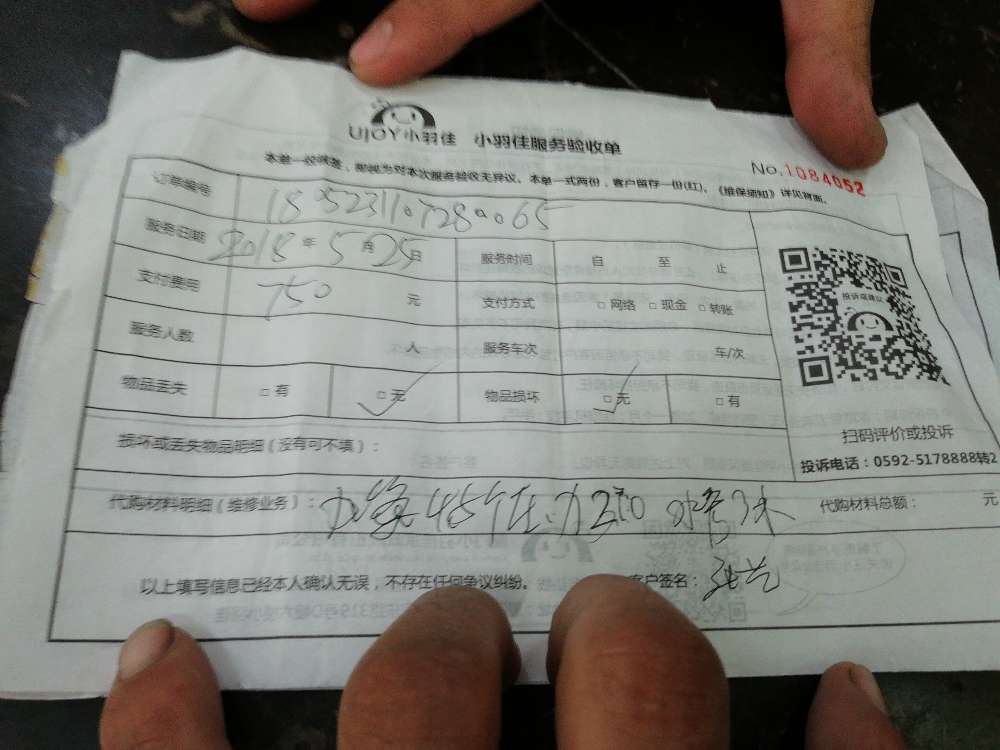 UJOY小羽佳 小羽佳服务验收单
No.1084052
本单一经签署，即视为对本次服务验收无异议。本单一式两份，客户留存一份(红)。《维保须知》详见背面。
订单编号 1805231107280065
服务日期 2018年5月25日 服务时间 自 至 止
支付费用 750 元 支付方式 □网络 □现金 □转账
服务人数 人 服务车次 车/次
物品丢失 □有 □无 物品损坏 □无 □有
投诉或建议
扫码评价或投诉
投诉电话：0592-5178888转2
损坏或丢失物品明细（没有可不填）：
代购材料明细（维修业务）： 代购材料总额： 元
以上填写信息已经本人确认无误，不存在任何争议纠纷。 客户签名：